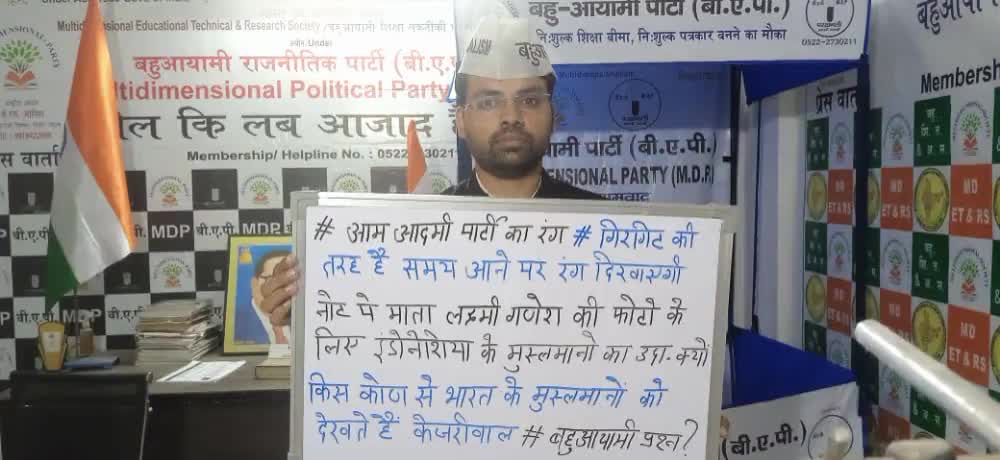 Multidimensional Educational Technical & Research Society
अंतर्गत.Under
बहुआयामी राजनीतिक पार्टी (बी.ए.
Multidimensional Political Party
बोल कि लब आजाद
Membership/ Helpline No. : 0522-2730211
प्रेस वार्ता
MDP
बी.ए.पी
MDP
बहु-आयामी पार्टी (बी.ए.पी.)
नि:शुल्क शिक्षा बीमा, नि:शुल्क पत्रकार बनने का मौका
0522-2730211
आयामी पार्टी (बी.ए.पी.)
DIMENSIONAL PARTY (M.D.P)
प्रेस वार्ता
बहुआया
Membersh
MD
ET & RS
MD
ET & RS
MD
ET & RS
बहुआ
# आम आदमी पार्टी का रंग # गिरगिट की
तरह है समय आने पर रंग दिखाएगी
नोट पे माता लक्ष्मी गणेश की फोटो के
लिए इंडोनेशिया के मुस्लमानों का उदा. क्यों
किस कोण से भारत के मुस्लमानों को
देखते हैं केजरीवाल # बहुआयामी प्रश्न?
(बी.ए.पी.)